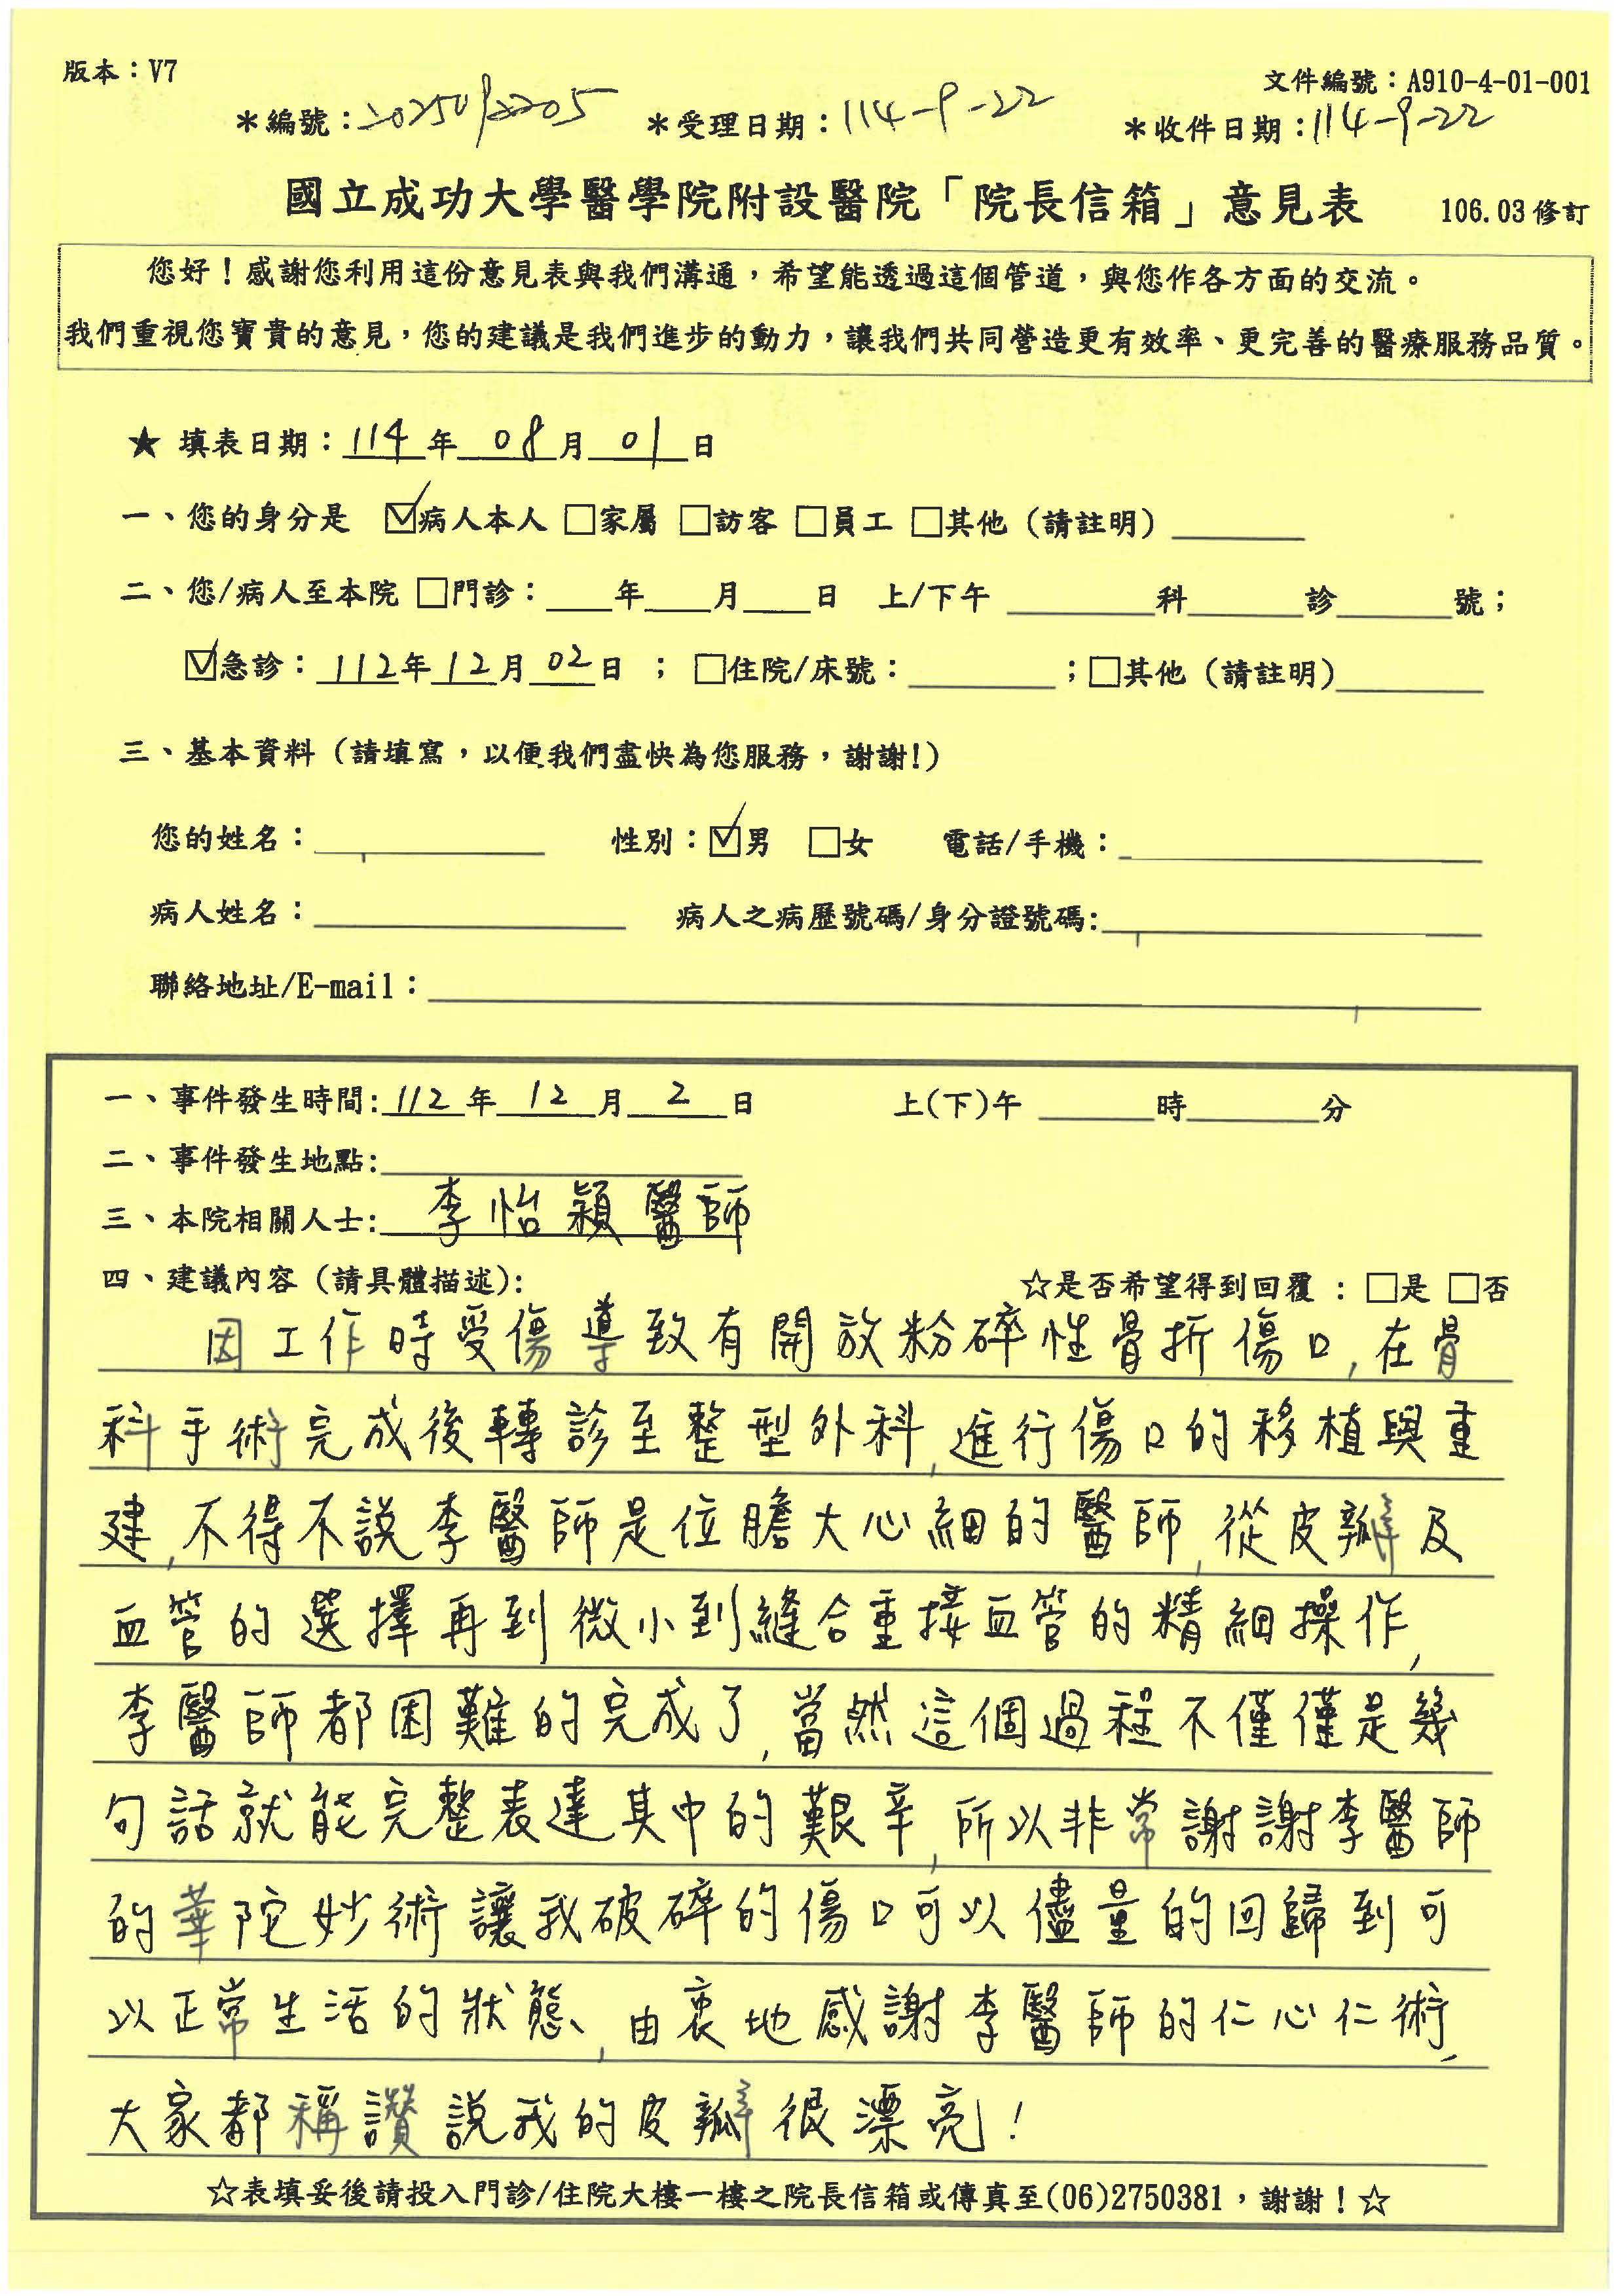 版本：V7
文件編號：A910-4-01-001
＊編號：2025092205 ＊受理日期：114-9-22 ＊收件日期：114-9-22
國立成功大學醫學院附設醫院「院長信箱」意見表 106.03修訂
您好！感謝您利用這份意見表與我們溝通，希望能透過這個管道，與您作各方面的交流。
我們重視您寶貴的意見，您的建議是我們進步的動力，讓我們共同營造更有效率、更完善的醫療服務品質。
★ 填表日期：114年08月01日
一、您的身分是 ☑病人本人 □家屬 □訪客 □員工 □其他（請註明）
二、您/病人至本院 □門診：＿年＿月＿日 上/下午 ＿科＿診＿號；
☑急診：112年12月02日 ； □住院/床號：＿；□其他（請註明）
三、基本資料（請填寫，以便我們盡快為您服務，謝謝!）
您的姓名： 性別：☑男 □女 電話/手機：
病人姓名： 病人之病歷號碼/身分證號碼:
聯絡地址/E-mail：
一、事件發生時間:112年12月2日 上(下)午 ＿時＿分
二、事件發生地點:
三、本院相關人士:李怡穎醫師
四、建議內容（請具體描述): ☆是否希望得到回覆 ：□是 □否
因工作時受傷導致有開放粉碎性骨折傷口,在骨
科手術完成後轉診至整型外科,進行傷口的移植與重
建,不得不說李醫師是位膽大心細的醫師,從皮瓣及
血管的選擇再到微小到縫合重接血管的精細操作,
李醫師都困難的完成了,當然這個過程不僅僅是幾
句話就能完整表達其中的艱辛,所以非常謝謝李醫師
的華陀妙術讓我破碎的傷口可以儘量的回歸到可
以正常生活的狀態,由衷地感謝李醫師的仁心仁術,
大家都稱讚說我的皮瓣很漂亮!
☆表填妥後請投入門診/住院大樓一樓之院長信箱或傳真至(06)2750381，謝謝！☆